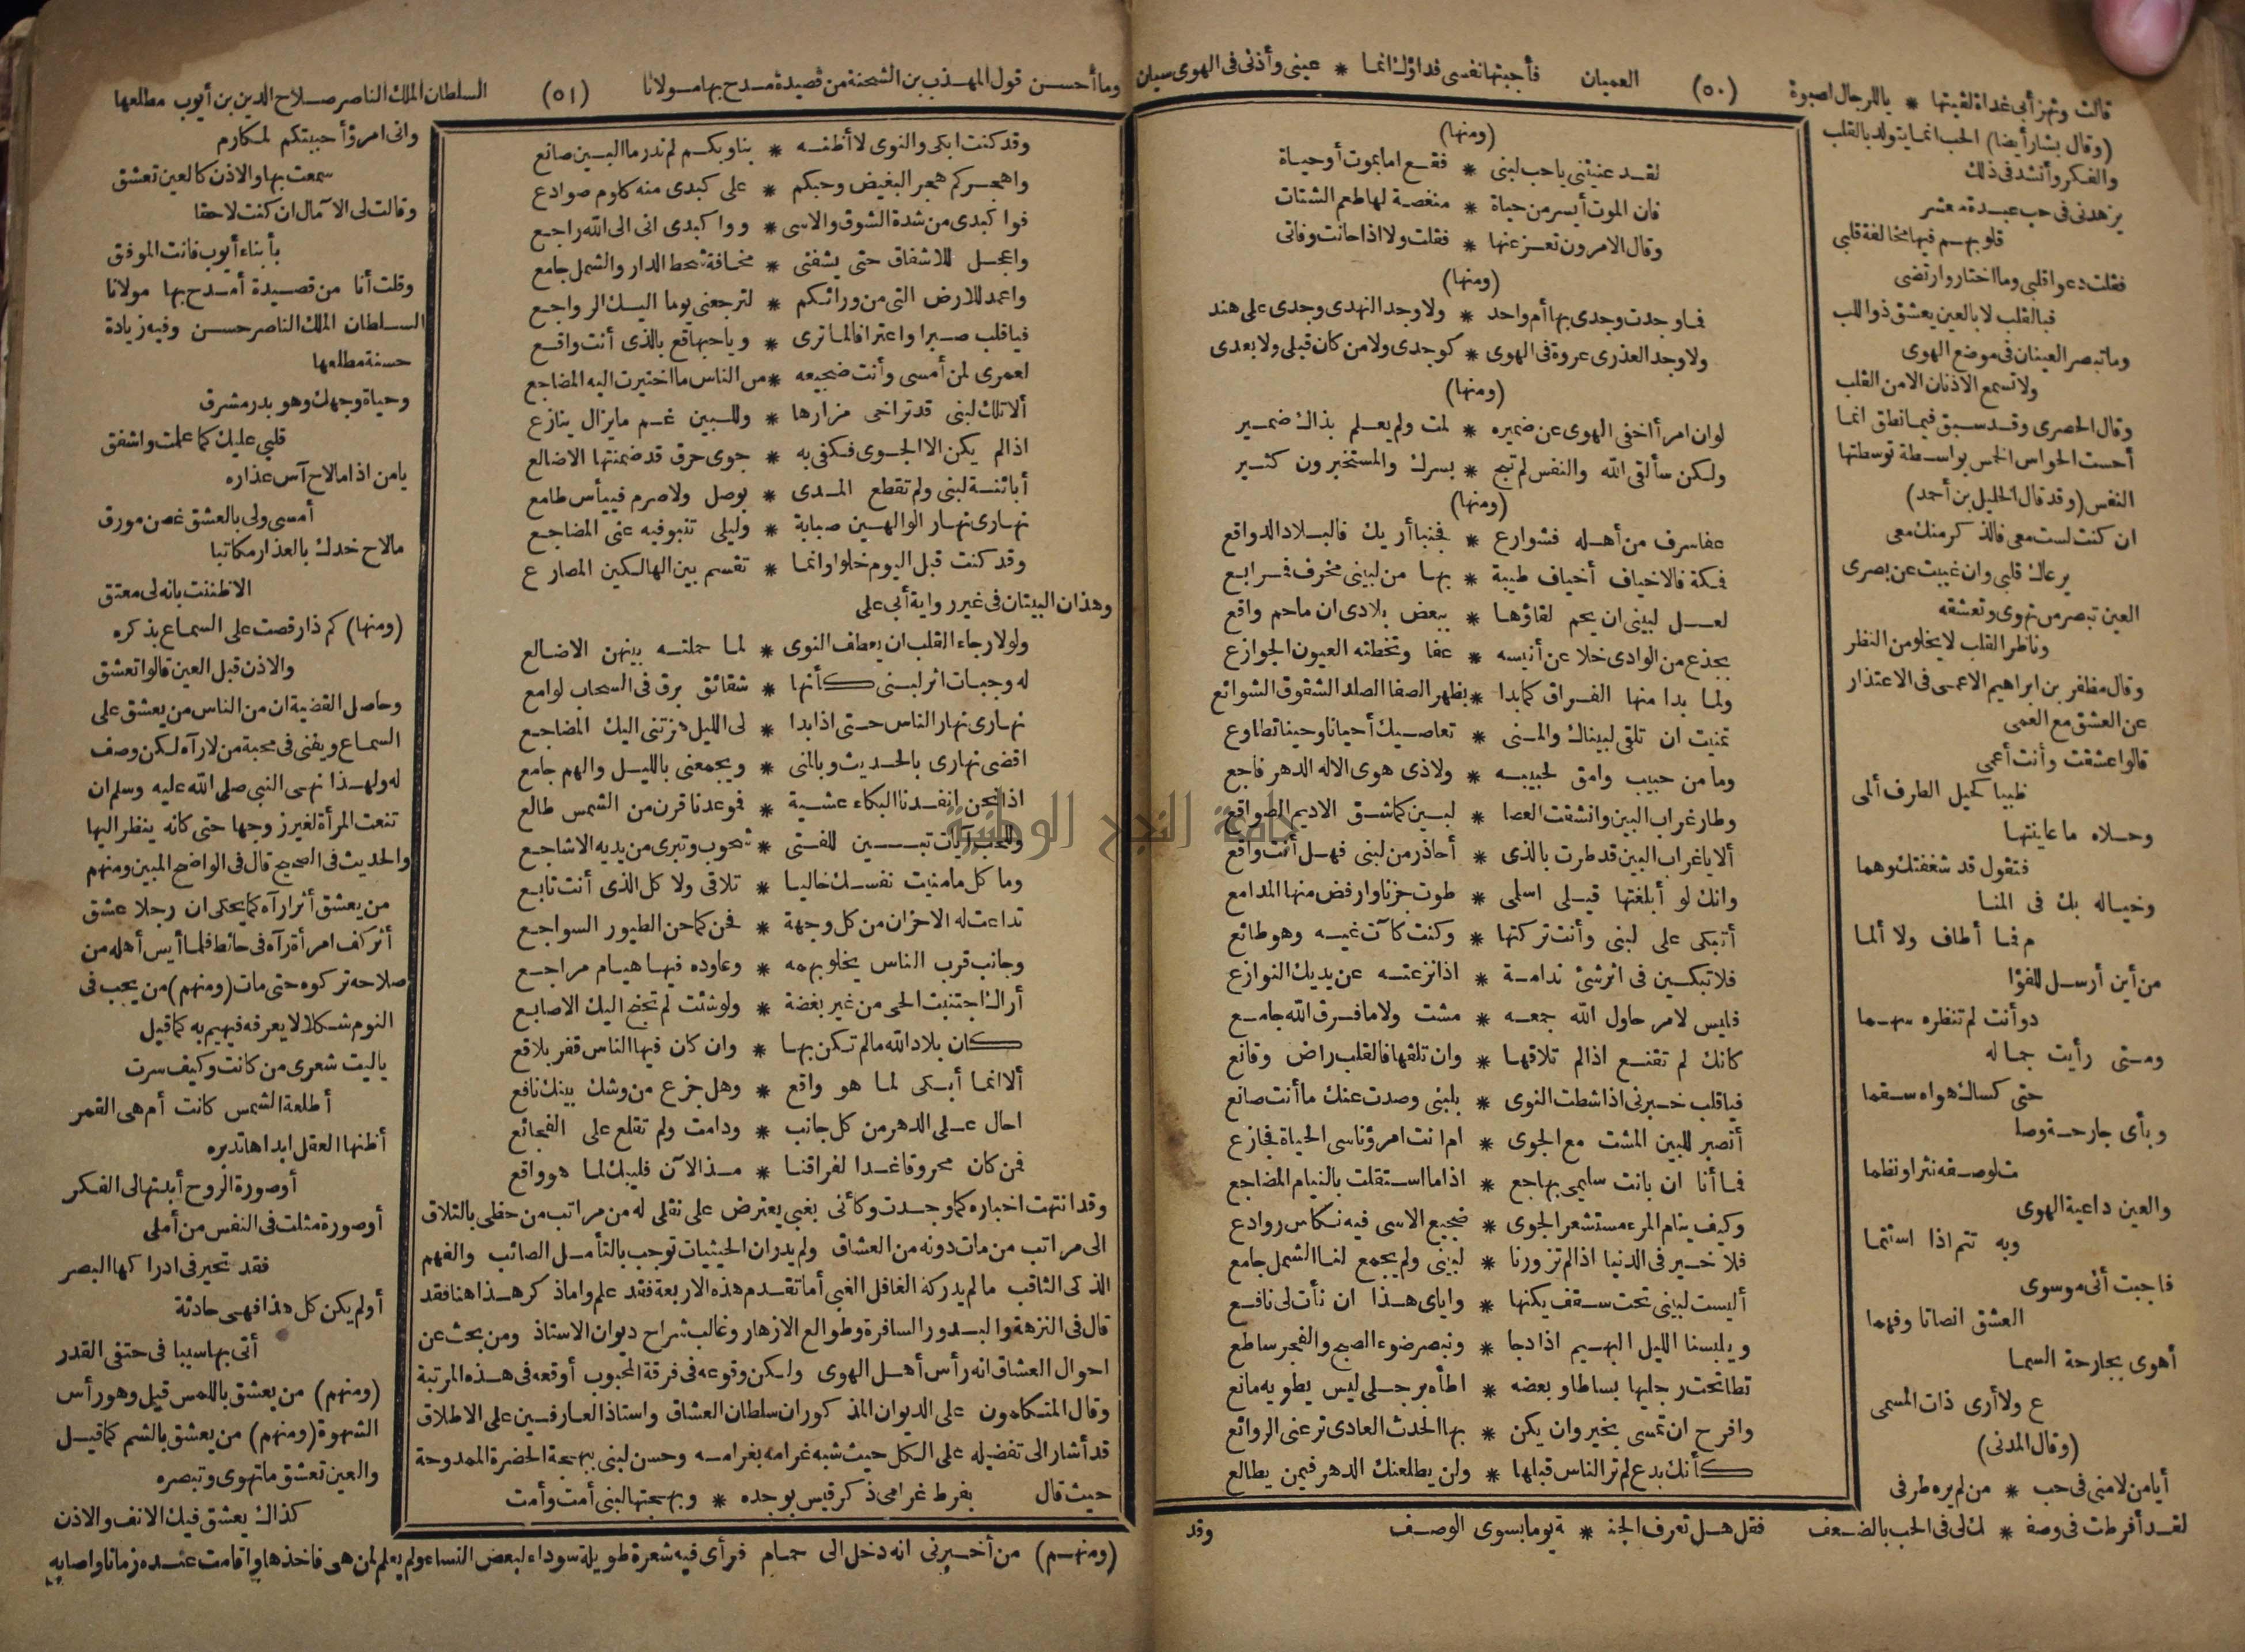 قالت وتهزأ بي غداة لقيتها * ياللرجال لصبوة العميان (٥٠) فأجبتها نفسي فداؤك انما * عيني وأذني في الهوى سيان
(وقال بشار أيضا) الحب انما يتولد بالقلب
والفكر وأنشد في ذلك
يزهدني في حب عبدة معشر
قلوبهم فيها مخالفة قلبي
فقلت دعوا قلبي وما اختار وارتضى
فبالقلب لا بالعين يعشق ذو اللب
وما تبصر العينان في موضع الهوى
ولا تسمع الاذنان الا من القلب
وقال الحصري وقد سبق فيما نطق انما
أحست الحواس الخمس بواسطة توسطتها
النفس (وقد قال الخليل بن أحمد)
ان كنت لست معي فالذكر منك معي
يرعاك قلبي وان غيبت عن بصري
العين تبصر من تهوى وتعشقه
وناظر القلب لا يخلو من النظر
وقال مظفر بن ابراهيم الاعمى في الاعتذار
عن العشق مع العمى
قالوا عشقت وأنت أعمى
ظبيا كحيل الطرف ألمى
وحلاه ما عاينتها
فتقول قد شغفتك وهما
وخياله بك في المنا
م فما أطاف ولا ألما
من أين أرسل للفؤا
د وأنت لم تنظره سهما
ومتى رأيت جماله
حتى كساك هواه سقما
وبأي جارحة وصلـ
ت لوصفه نثرا ونظما
والعين داعية الهوى
وبه تتم اذا استتما
فاجبت أني موسوي
العشق انصاتا وفهما
أهوى بجارحة السما
ع ولا أرى ذات المسمى
(وقال المدني)
أيا من لامني في حب * من لم يره طرفي
لقد أفرطت في وصفـ * ـك لي في الحب بالضعف فقل هل تعرف الجنـ * ـة يوما بسوى الوصف
(ومنها)
لقد عنيتني ياحب لبنى * فقع اما بموت أو حياة
فان الموت أيسر من حياة * منغصة لها طعم الشتات
وقال الامرون تعزعنها * فقلت ولا اذا حانت وفاتي
(ومنها)
فما وجدت وجدي بها أم واحد * ولا وجد النهدي وجدي على هند
ولا وجد العذري عروة في الهوى * كوجدي ولا من كان قبلي ولا بعدي
(ومنها)
لو ان امرأ أخفى الهوى عن ضميره * لمت ولم يعلم بذاك ضمير
ولكن سألقى الله والنفس لم تبح * بسرك والمستخبرون كثير
(ومنها)
عفا سرف من أهله فشوارع * فجنبا أريك فالبلاد الدوافع
فمكة فالاخياف أخياف طيبة * بها من لبيني مخرف فمرابع
لعل لبيني ان يحم لقاؤها * ببعض بلادي ان ماحم واقع
بجذع من الوادي خلا عن أنيسه * عفا وتخطته العيون الجوازع
ولما بدا منها الفراق كما بدا * بظهر الصفا الصلد الشقوق الشوائع
تمنيت ان تلقى لبيناك والمنى * تعاصيك أحيانا وحينا تطاوع
وما من حبيب وامق لحبيبه * ولا ذي هوى الا له الدهر فاجع
وطار غراب البين وانشقت العصا * لبين كما شق الاديم الصوانع
ألا ياغراب البين قد طرت بالذي * أحاذر من لبنى فهل أنت واقع
وانك لو أبلغتها قيلي اسلمي * طوت حزنا وارفض منها المدامع
أتبكي على لبنى وأنت تركتها * وكنت كآت غيه وهو طائع
فلا تبكين في اثر شئ ندامة * اذا نزعته عن يديك النوازع
فليس لامر حاول الله جمعه * مشت ولا مافرق الله جامع
كانك لم تقنع اذا لم تلاقها * وان تلقها فالقلب راض وقانع
فياقلب خبرني اذا شطت النوى * بلبني وصدت عنك ما أنت صانع
أتصبر للبين المشت مع الجوى * ام انت امرؤ ناسي الحياة فجازع
فما أنا ان بانت سليمى بهاجع * اذا ما استقلت بالنيام المضاجع
وكيف ينام المرء مستشعر الجوى * ضجيع الاسى فيه نكاس روادع
فلا خير في الدنيا اذا لم تزورنا * لبيني ولم يجمع لنا الشمل جامع
أليست لبيني تحت سقف يكنها * واياي هذا ان نأت لي نافع
ويلبسنا الليل البهيم اذا دجا * ونبصر ضوء الصبح والفجر ساطع
تطا تحت رجليها بساطا وبعضه * اطأه برجلي ليس يطويه مانع
وافرح ان تمسي بخير وان يكن * بها الحدث العادي ترعني الروائع
كأنك بدع لم تر الناس قبلها * ولن يطلعنك الدهر فيمن يطالع
وقد
وما أحسن قول المهذب بن الشحنة من قصيدة مدح بها مولانا (٥١) السلطان الملك الناصر صلاح الدين بن أيوب مطلعها
وقد كنت ابكي والنوى لا أظنه * بنا وبكم لم ندر ما البين صانع
واهجركم هجر البغيض وحبكم * على كبدي منه كلوم صوادع
فوا كبدي من شدة الشوق والاسى * ووا كبدي اني الى الله راجع
واعجل للاشفاق حتى يشفني * مخافة شحط الدار والشمل جامع
واعمد للارض التي من ورائكم * لترجعني يوما اليك الرواجع
فياقلب صبرا واعترافا لما ترى * وياحبها قع بالذي أنت واقع
لعمري لمن أمسى وأنت ضجيعه * من الناس ما اختيرت اليه المضاجع
ألا تلك لبنى قد تراخى مزارها * وللبين غم مايزال ينازع
اذا لم يكن الا الجوى فكفى به * جوى حرق قد ضمنتها الاضالع
أبائنة لبنى ولم تقطع المدى * بوصل ولا صرم فييأس طامع
نهاري نهار الوالهين صبابة * وليلي تنبو فيه عني المضاجع
وقد كنت قبل اليوم خلوا وانما * تقسم بين الهالكين المصارع
وهذان البيتان في غير رواية أبي علي
ولولا رجاء القلب ان يعطف النوى * لما حملته بينهن الاضالع
له وجبات اثر لبنى كأنها * شقائق برق في السحاب لوامع
نهاري نهار الناس حتى اذا بدا * لي الليل هزتني اليك المضاجع
اقضي نهاري بالحديث وبالمنى * ويجمعني بالليل والهم جامع
اذا نحن انفدنا البكاء عشية * فموعدنا قرن من الشمس طالع
وللحب آيات تبين للفتى * شحوب وتبرى من يديه الاشاجع
وما كل مامنيت نفسك خاليا * تلاقي ولا كل الذي أنت تابع
تداعت له الاحزان من كل وجهة * فحن كما حن الطيور السواجع
وجانب قرب الناس يخلو بهمه * وعاوده فيها هيام مراجع
أراك اجتنبت الحي من غير بغضة * ولو شئت لم تجنح اليك الاصابع
كان بلاد الله مالم تكن بها * وان كان فيها الناس قفر بلاقع
ألا انما أبكي لما هو واقع * وهل جزع من وشك بينك نافع
احال على الدهر من كل جانب * ودامت ولم تقلع على الفجائع
فمن كان محزوقا غدا لفراقنا * فمذ الآن فليبك لما هو واقع
وقد انتهت اخباره كما وجدت وكأني بغبي يعترض على نقلي له من مراتب من حظي بالتلاق
الى مراتب من مات دونه من العشاق ولم يدر ان الحيثيات توجب بالتأمل الصائب والفهم
الذكي الثاقب مالم يدركه الغافل الغبي أما تقدم هذه الاربعة فقد علم واما ذكر هذا هنا فقد
قال في النزهة والبدور السافرة وطوالع الازهار وغالب شراح ديوان الاستاذ ومن بحث عن
احوال العشاق انه رأس أهل الهوى ولكن وقوعه في فرقة المحبوب أوقعه في هذه المرتبة
وقال المتكلمون على الديوان المذكور ان سلطان العشاق واستاذ العارفين على الاطلاق
قد أشار الى تفضيله على الكل حيث شبه غرامه بغرامه وحسن لبنى ببهجة الحضرة الممدوحة
حيث قال بفرط غرامي ذكر قيس بوجده * وبهجتها لبنى أمت وأمت
واني امرؤ أحببتكم لمكارم
سمعت بها والاذن كالعين تعشق
وقالت لي الآمال ان كنت لاحقا
بأبناء أيوب فانت الموفق
وقلت أنا من قصيدة أمدح بها مولانا
السلطان الملك الناصر حسن وفيه زيادة
حسنة مطلعها
وحياة وجهك وهو بدر مشرق
قلبي عليك كما علمت واشفق
يامن اذا مالاح آس عذاره
أمسى ولي بالعشق غصن مورق
مالاح خدك بالعذار مكاتبا
الا ظننت بانه لي معتق
(ومنها) كم ذا رقصت على السماع بذكره
والاذن قبل العين قالوا تعشق
وحاصل القضية ان من الناس من يعشق على
السماع ويفنى في محبة من لا رآه لكن وصف
له ولهذا نهى النبي صلى الله عليه وسلم ان
تنعت المرأة لغير زوجها حتى كانه ينظر اليها
والحديث في الصحيح قال في الواضح المبين ومنهم
من يعشق أثرا رآه كما يحكى ان رجلا عشق
أثر كف امرأة رآه في حائط فلما أيس أهله من
صلاحه تركوه حتى مات (ومنهم) من يحب في
النوم شكلا لا يعرفه فيهيم به كما قيل
ياليت شعري من كانت وكيف سرت
أطلعة الشمس كانت أم هي القمر
أظنها العقل ابداها تدبره
أو صورة الروح أبدتها لي الفكر
أو صورة مثلت في النفس من أملي
فقد تحير في ادراكها البصر
أو لم يكن كل هذا فهي حادثة
أتى بها سببا في حتفي القدر
(ومنهم) من يعشق باللمس قيل وهو رأس
الشهوة (ومنهم) من يعشق بالشم كما قيل
والعين تعشق ما تهوى وتبصره
كذاك يعشق فيك الانف والاذن
(ومنهم) من أخبرني انه دخل الى حمام فرأى فيه شعرة طويلة سوداء لبعض النساء ولم يعلم لمن هي فاخذها واقامت عنده زمانا واصابه
جامعة النجاح الوطنية